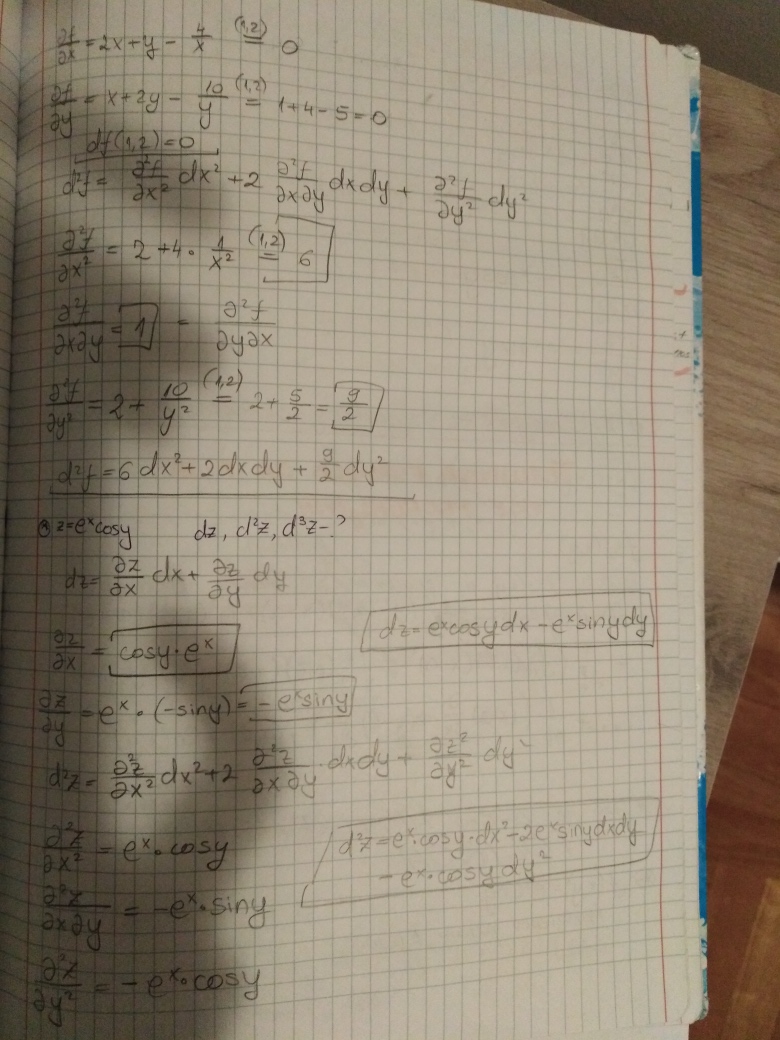 ∂f/∂x = 2x+y - 4/x (1,2)= 0
∂f/∂y = x+2y - 10/y (1,2)= 1+4-5=0
df(1,2)=0
d²f = ∂²f/∂x² dx² + 2 ∂²f/∂x∂y dxdy + ∂²f/∂y² dy²
∂²f/∂x² = 2+4· 1/x² (1,2)= 6
∂²f/∂x∂y = 1 = ∂²f/∂y∂x
∂²f/∂y² = 2+ 10/y² (1,2)= 2+ 5/2 = 9/2
d²f=6dx²+2dxdy+ 9/2 dy²
③ z=eˣcosy dz, d²z, d³z-?
dz= ∂z/∂x dx+ ∂z/∂y dy
dz=eˣcosydx-eˣsinydy
∂z/∂x = cosy·eˣ
∂z/∂y = eˣ·(-siny)= -eˣsiny
d²z= ∂²z/∂x² dx²+2 ∂²z/∂x∂y ·dxdy+ ∂z²/∂y² dy²
∂²z/∂x² = eˣ·cosy
d²z=eˣ·cosy·dx²-2eˣsinydxdy
-eˣ·cosydy²
∂²z/∂x∂y = -eˣ·siny
∂²z/∂y² = -eˣ·cosy